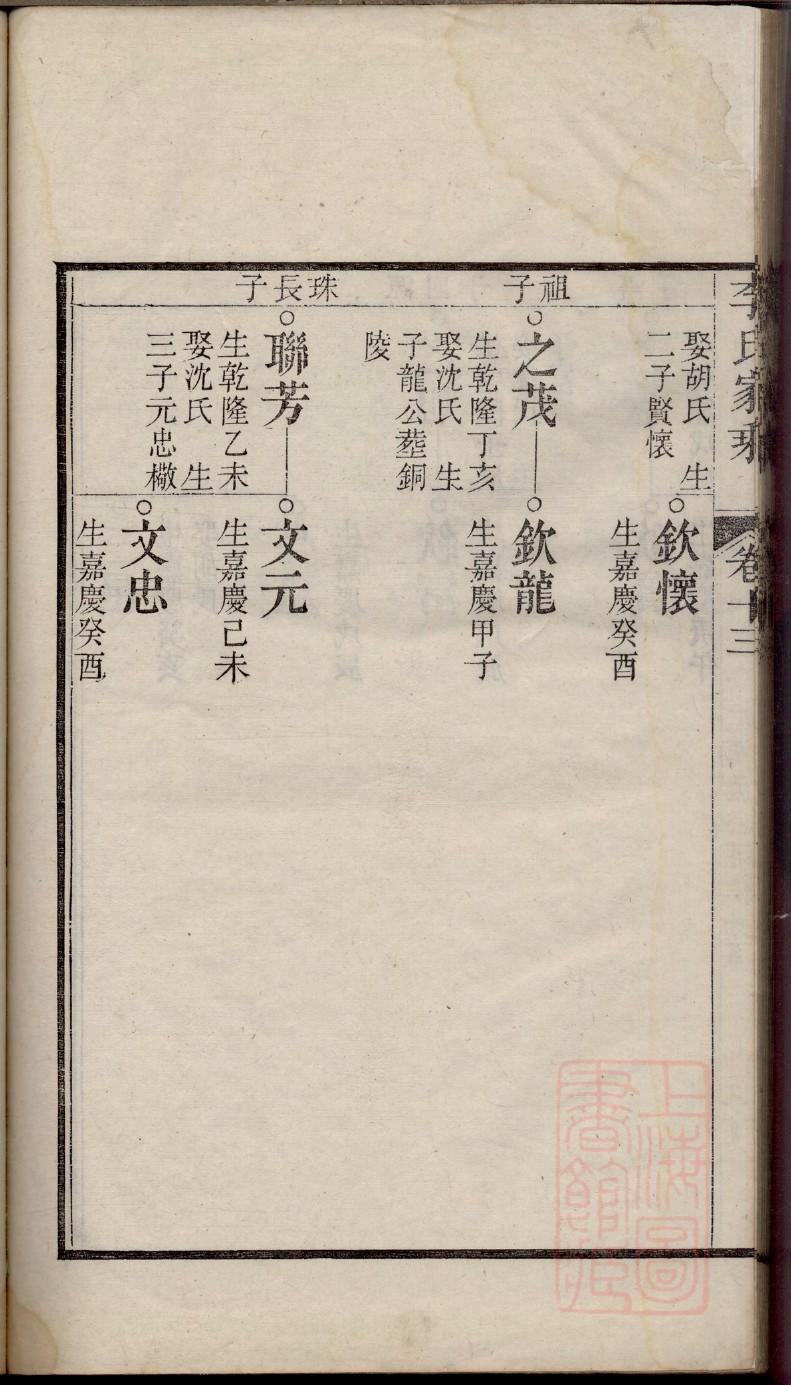 李氏家乘
卷十三
娶胡氏 生
二子賢懷
欽懷
生嘉慶癸酉
祖子
之茂
生乾隆丁亥
娶沈氏 生
子龍公塟銅
陵
欽龍
生嘉慶甲子
珠長子
聯芳
生乾隆乙未
娶沈氏 生
三子元忠檄
文元
生嘉慶己未
文忠
生嘉慶癸酉
上海圖
書館藏